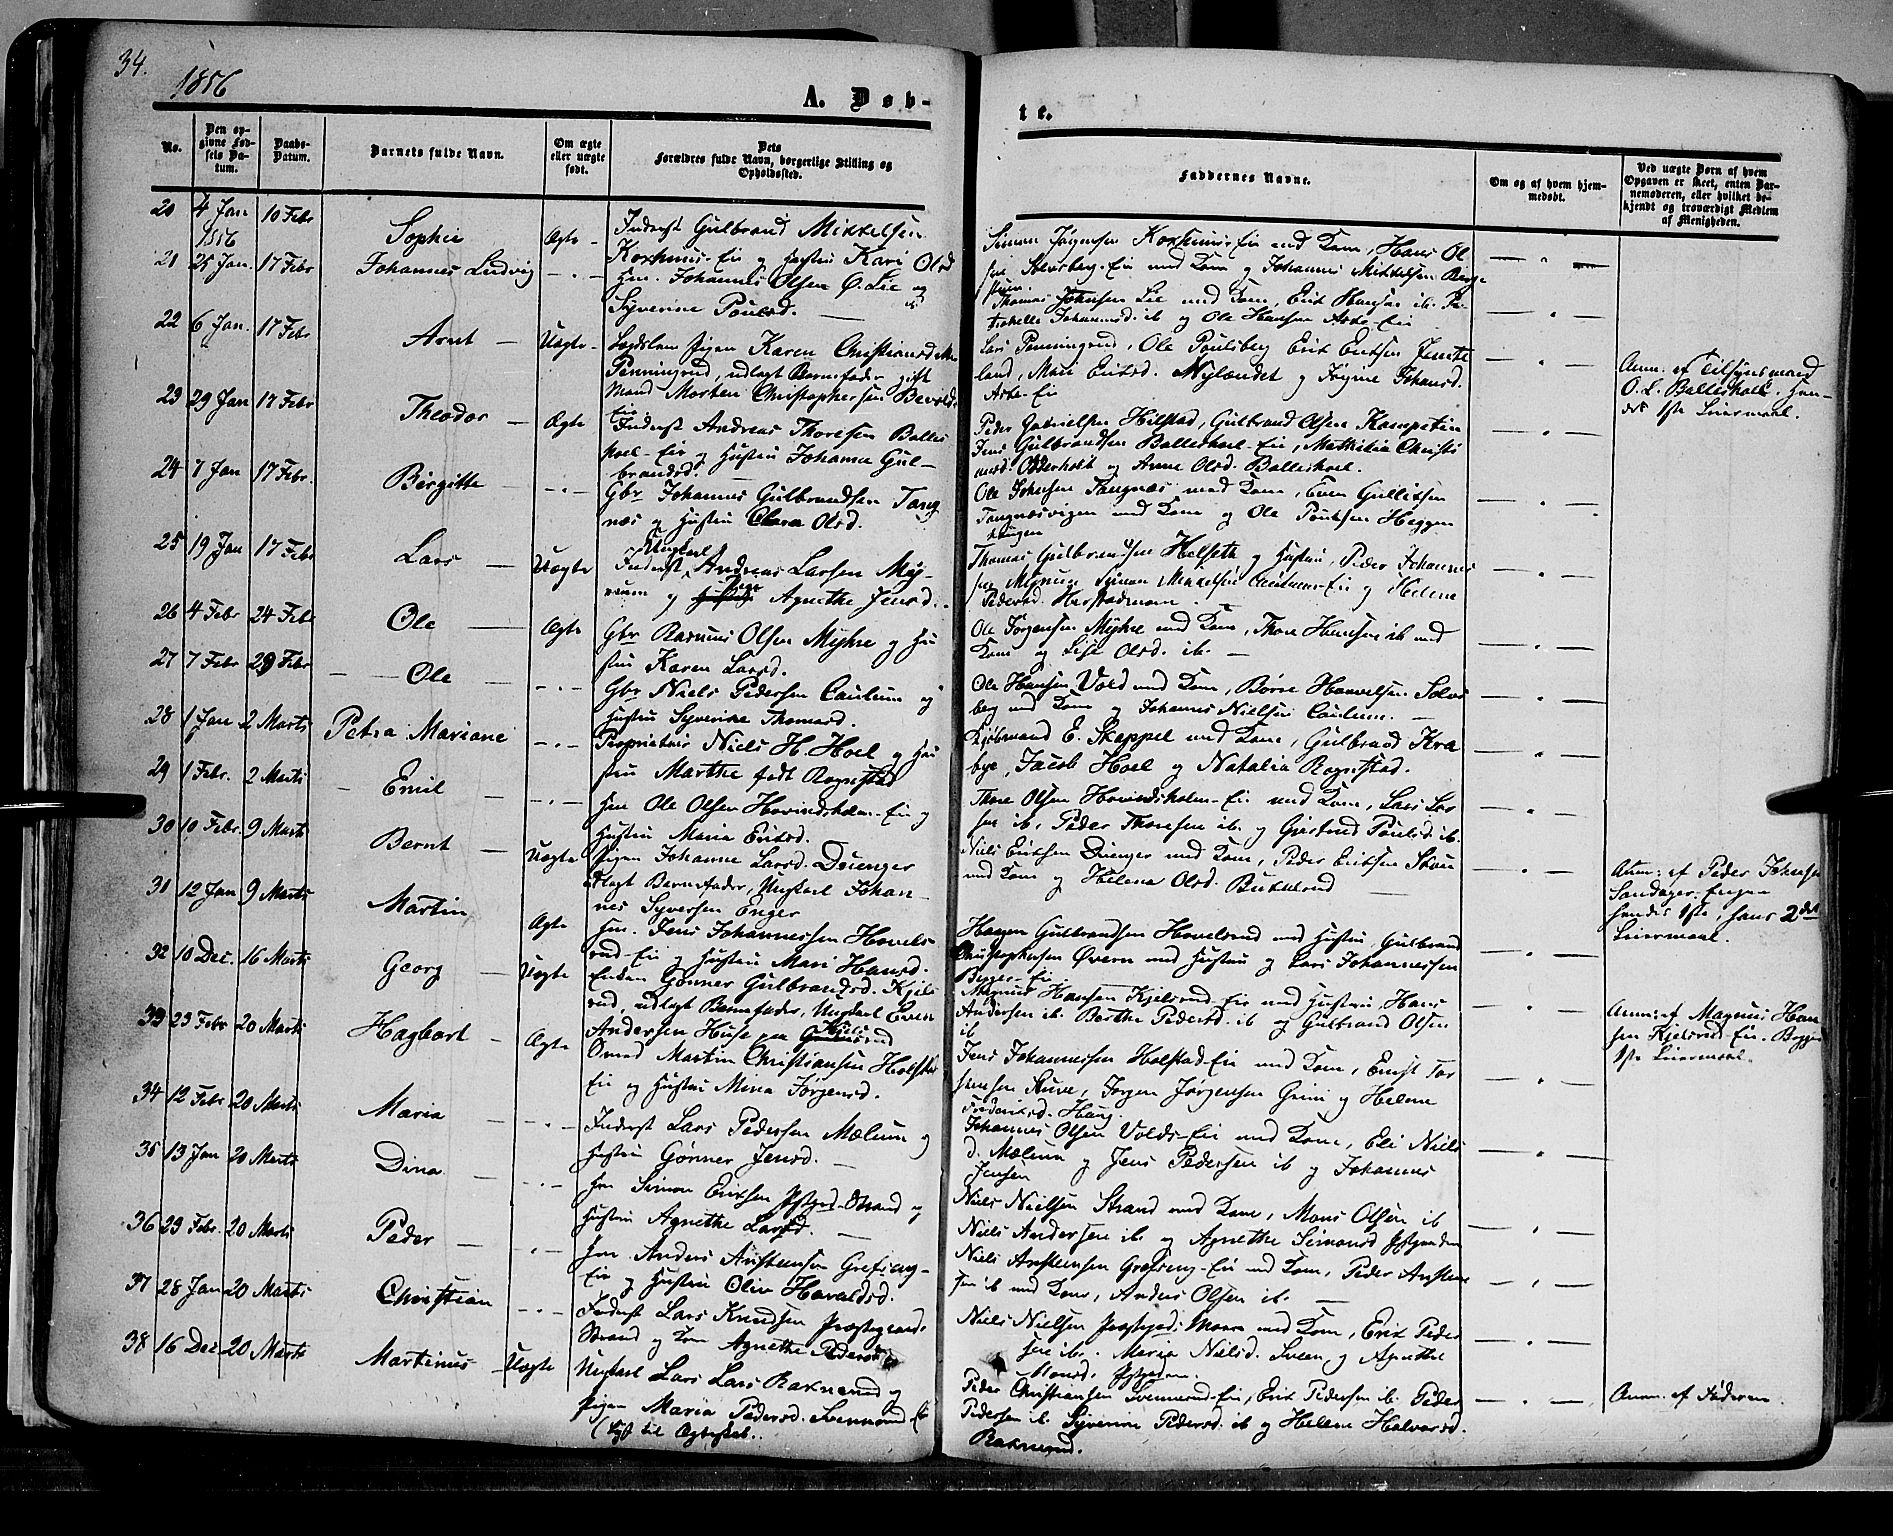 34.
1856
A. Døb-
te.
No.
Den opgivne Fødsels Datum.
Daabs-Datum.
Barnets fulde Navn.
Om ægte eller uægte født.
Dets Forældres fulde Navn, borgerlige Stilling og Opholdssted.
Faddernes Navne.
Om og af hvem hjemmedøbt.
Ved uægte Børn af hvem Opgaven er skeet, enten Barnemoderen, eller hvilket bekjendt og troværdigt Medlem af Menigheden.
20 4 Jan 1856 10 Febr Sophie Ægte
Inderst Gulbrand Mikkelsen
Koxhuus-Eie og Hustru Kari Olsd
Simon Jørgensen Koxhuus-Eie med Kone, Hans Ol
sen Stensberg-Eie med Kone og Johannes Mikkelsen Berge
21 25 Jan. 17 Febr Johannes Ludvig - " -
Hm. Johannes Olsen Ø. Lie og
Syverine Poulsd.
Thomas Johnsen Lie med Kone, Erik Hansen ib. Pe
tronelle Johannesd. ib og Ole Hansen Aske-Eie
22 6 Jan. 17 Febr Arnt Uægte
Pigen Karen Christiansd
Penningrud, udlagt Barnefader gift
Mand Morten Christophersen
Lars Penningrud, Ole Poulsberg Erik Eriksen
land, Mari Eriksd. Nylændet og Jøgine Johansd.
Aske-Eie
Anm. af Tilsynsmand
O. L. Balleshoel. Hen-
des 1ste Leiermaal.
23 29 Jan 17 Febr Theodor Ægte
Inderst Andreas Thoresen Balles
hoel-Eie og Hustru Johanne Gul-
brandsd.
Peder Gabrielsen Hilstad, Gulbrand Olsen
Jens Gulbrandsen Balleshoel-Eie, Mathilia Christi
ansd. og Anne Olsd. Balleshoel.
24 7 Jan 17 Febr. Birgitte - " -
Gbr Johannes Gulbrandsen Tang
næs og Hustru Clara Olsd.
Ole Johnsen Tangnæs med Kone, Even Gullixsen
Tangnæsvigen med Kone og Ole Poulsen Heggen
haugen
25 19 Jan 17 Febr Lars Uægte
Ungkarl
Inderst Andreas Larsen My-
og Pige Agnethe Jensd.
Thomas Gulbrandsen Helseth og Hustru, Peder Johannes
sen Simon Mikkelsen Caulum-Eie og Helene
Pedersd.
26 4 Febr 24 Febr Ole Ægte
Gbr Rasmus Olsen Myhre og Hu
stru Karen Larsd.
Ole Jørgensen Myhre med Kone, Thore Hansen ib med
Kone og Lise Olsd. ib.
27 7 Febr 29 Febr Ole - " -
Gbr Niels Pedersen Caulum og
Hustru Syverine Thomasd.
Ole Hansen Vold med Kone, Børre Haavelsen Solvs
berg med Kone og Johannes Nielsen Caulum.
28 1 Jan 2 Marts Petra Mariane - " -
Proprietair Niels H. Hoel og Hu
stru Marthe født Rognstad
Kjøbmand E. Skappel med Kone, Gulbrand Kra
bye, Jacob Hoel og Natalia Rognstad.
29 1 Febr. 2 Marts Emil - " -
Hm Ole Olsen Hovindsholm-Eie og
Hustru Maria Eriksd.
Thore Olsen Hovindsholm-Eie med Kone, Lars Lar
sen ib, Peder Thoresen ib. og Gjertrud Poulsd. ib.
30 10 Febr. 9 Marts Bernt Uægte
Pigen Johanne Larsd. Deienger
udlagt Barnefader, Ungkarl Johan-
nes Syversen Enger
Niels Eriksen Dienger med Kone, Peder Eriksen
med Kone og Helena Olsd. Bukkerud
Anm: af Peder Johnsen
Sandager-Engen
hendes 1ste, hans 2det
Leiermaal.
31 12 Jan 9 Marts Martin Ægte
Hm. Jens Johannessen Hovels
rud-Eie og Hustru Mari Hansd.
Haagen Gulbrandsen Hovelsrud med Hustru, Gulbrand
Christophersen Øvern med Hustru og Lars Johannessen
32 10 Dec. 16 Marts Georg Uægte
Enken Gønner Gulbrandsd. Kjels
rud, udlagt Barnefader, Ungkarl Even
Andersen Huse
Magnus Hansen Kjelsrud-Eie med Hustru, Hans
Andersen ib. Berthe Pedersd. ib og Gulbrand Olsen
ib
Anm: af Magnus Han
sen Kjelsrud-Eie. Begges
1ste Leiermaal.
33 23 Febr 20 Marts Hagbart Ægte
Martin Christiansen
Eie og Hustru Mena Jørgensd.
Jens Johannessen Holstad-Eie med Kone, Ernst
Jørgen Jørgensen Grini og Helene
Frederiksd. Haug.
34 12 Febr 20 Marts Maria - " -
Inderst Lars Pedersen Mælum og
Hustru Gønner Jensd.
Johannes Olsen Volds-Eie med Kone, Eli Niels
d. Mælum og Jens Pedersen ib og Johannes
Jensen
35 13 Jan 20 Marts Dina - " -
Hm Simon Eriksen Strand og
Hustru Agnethe Larsd.
Niels Nielsen Strand med Kone, Mons Olsen ib
Niels Andersen ib. og Agnethe Simonsd
36 23 Febr. 20 Marts Peder - " -
Hm Anders Anstensen Grefseng-
Eie og Hustru Olia Haraldsd.
Niels Anstensen Grefseng-Eie med Kone, Peder Ansten
sen ib med Kone, Anders Olsen ib.
37 28 Jan 20 Marts Christian - " -
Inderst Lars Knudsen Præstegaard
Strand og Kone Agnethe Pedersd.
Niels Nielsen med Kone, Erik Peder
sen ib. Maria Nielsd. Sveen og Agnethe
Monsd.
38 16 Dec 20 Marts Martinus Uægte
Ungkarl Lars Lars Raknerud og
Pigen Maria Pedersd. Svennerud
til Ægteskab.
Peder Christiansen Svennerud-Eie, Erik Pedersen ib. Peder
Pedersen ib. Syverine Pedersd. ib og Helene Halvorsd.
Raknerud.
Anm. af Faderen